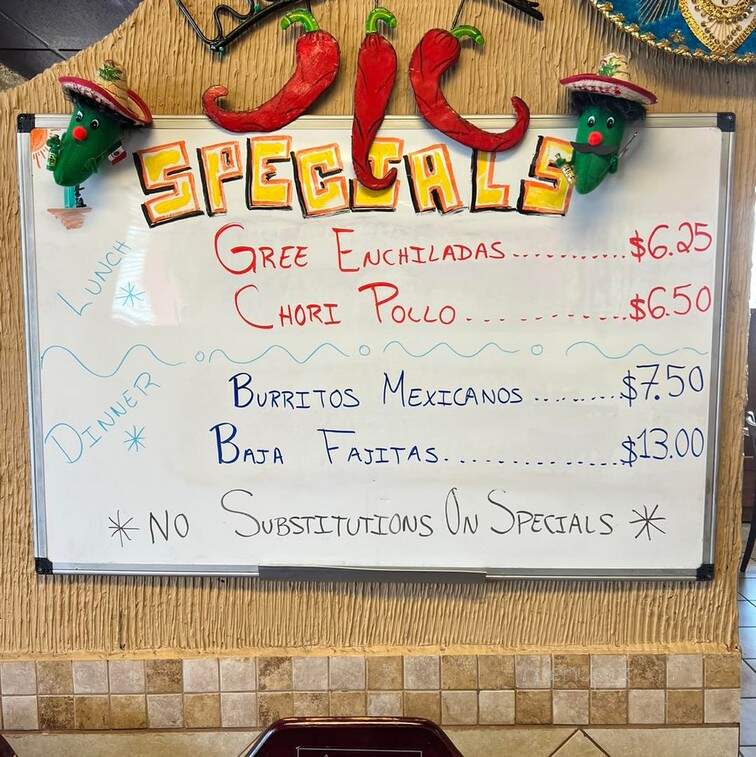 SPECIALS
LUNCH
GREE ENCHILADAS..........$6.25
CHORI POLLO.............$6.50
DINNER
BURRITOS MEXICANOS.........$7.50
BAJA FAJITAS...............$13.00
* NO SUBSTITUTIONS ON SPECIALS *